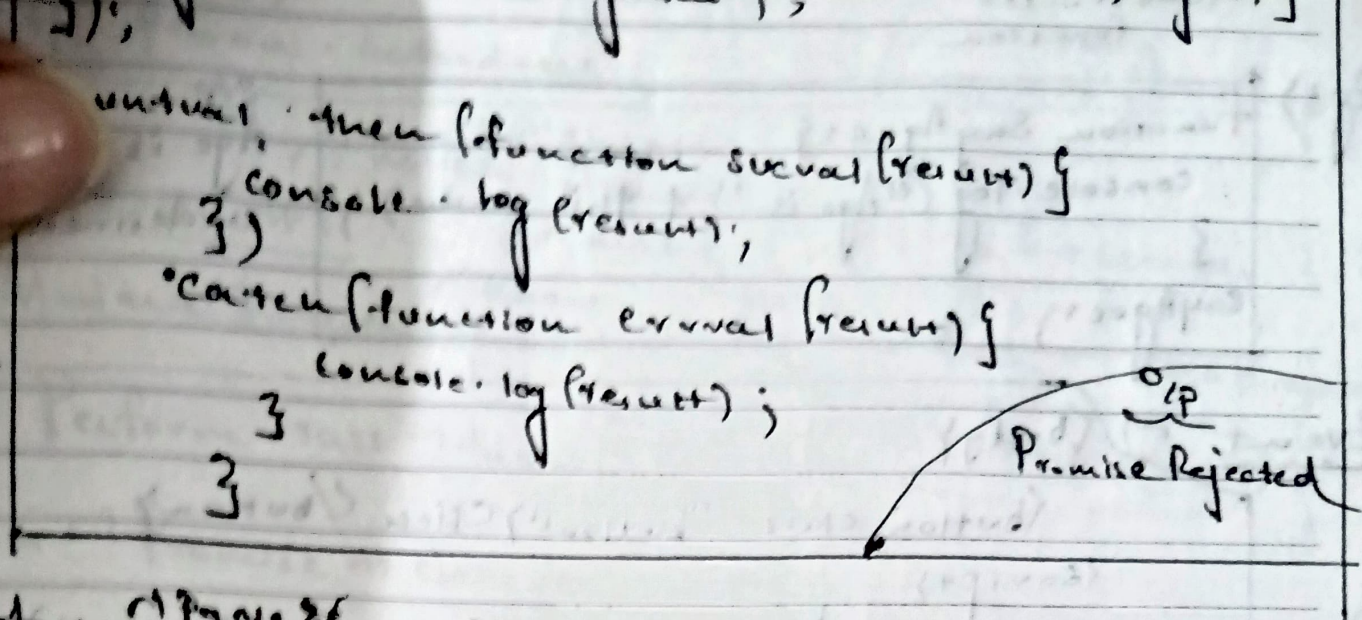 });
. then (function sucval (result) {
console . log (result);
})
.catch (function errval (result) {
console. log (result);
}
}
O/P
Promise Rejected